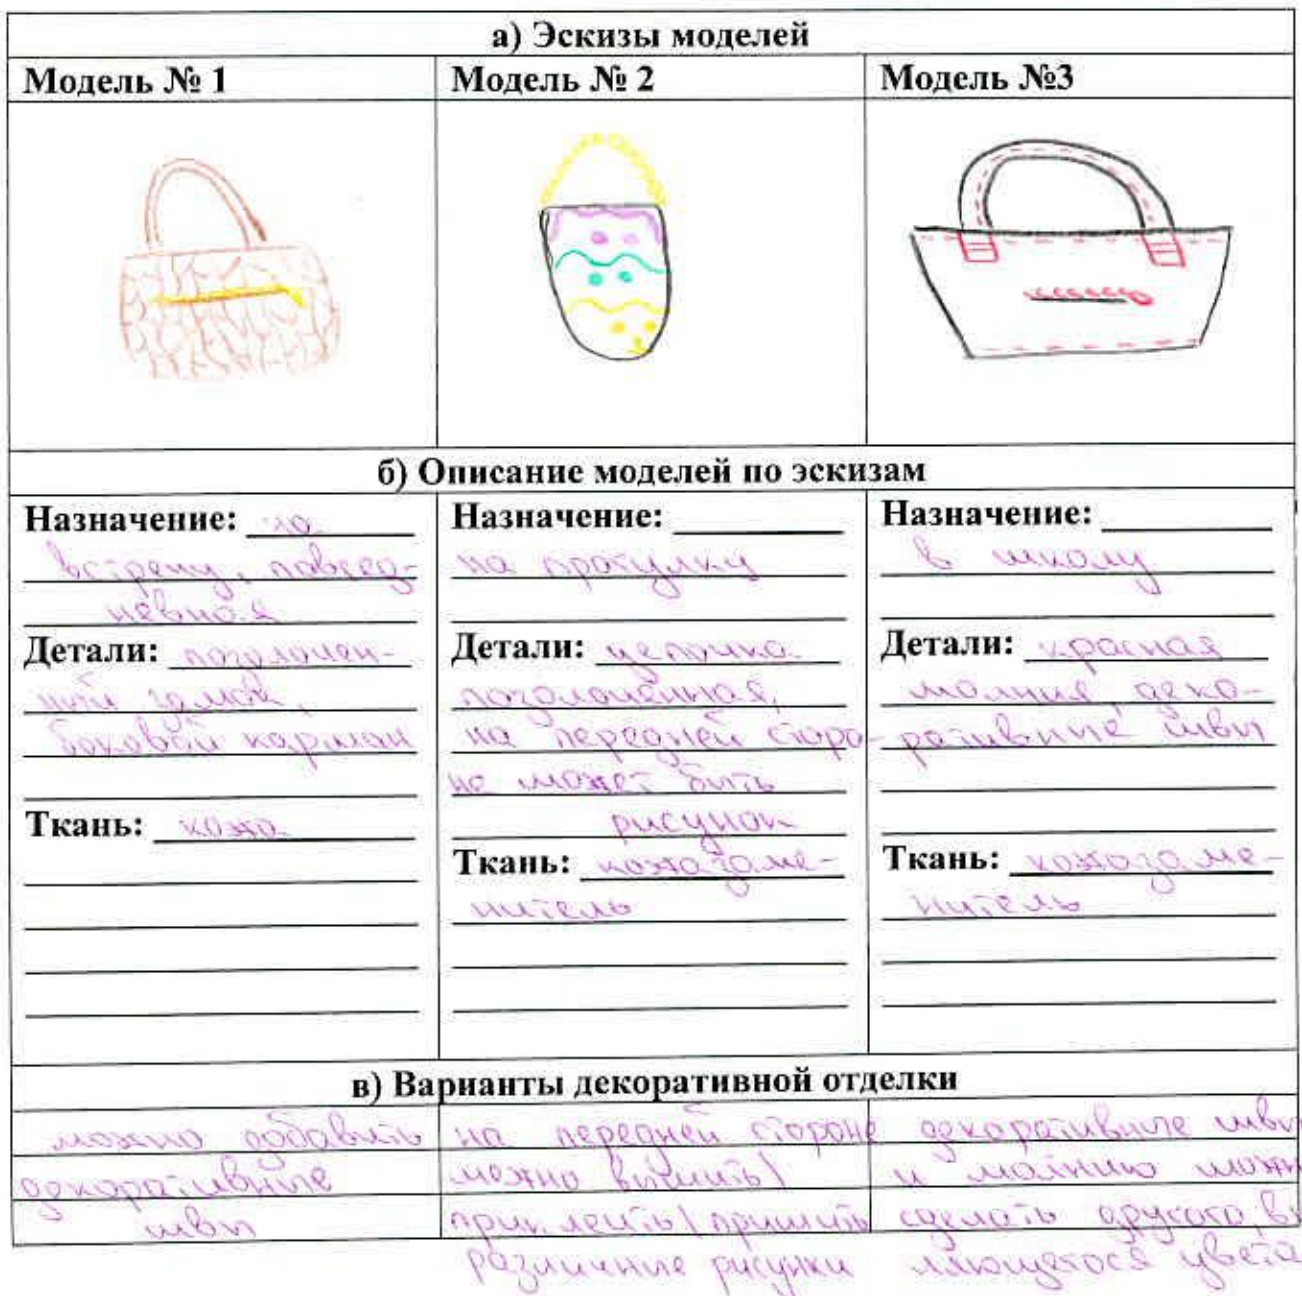 а) Эскизы моделей
Модель № 1
Модель № 2
Модель №3
б) Описание моделей по эскизам
Назначение: на
встречу, повсед-
невная
Детали: позолочен-
ный замок,
боковой карман
Ткань: кожа
Назначение:
на прогулку
Детали: цепочка
позолоченная,
на передней сторо-
не может быть
рисунок
Ткань: кожзаме-
нитель
Назначение:
в школу
Детали: красная
молния, деко-
ративные швы
Ткань: кожзаме-
нитель
в) Варианты декоративной отделки
можно добавить
декоративные
швы
на передней стороне
можно вышить/
приклеить/пришить
различные рисунки
декоративные швы
и молнию можн
сделать другого, вы
ляющегося цвета